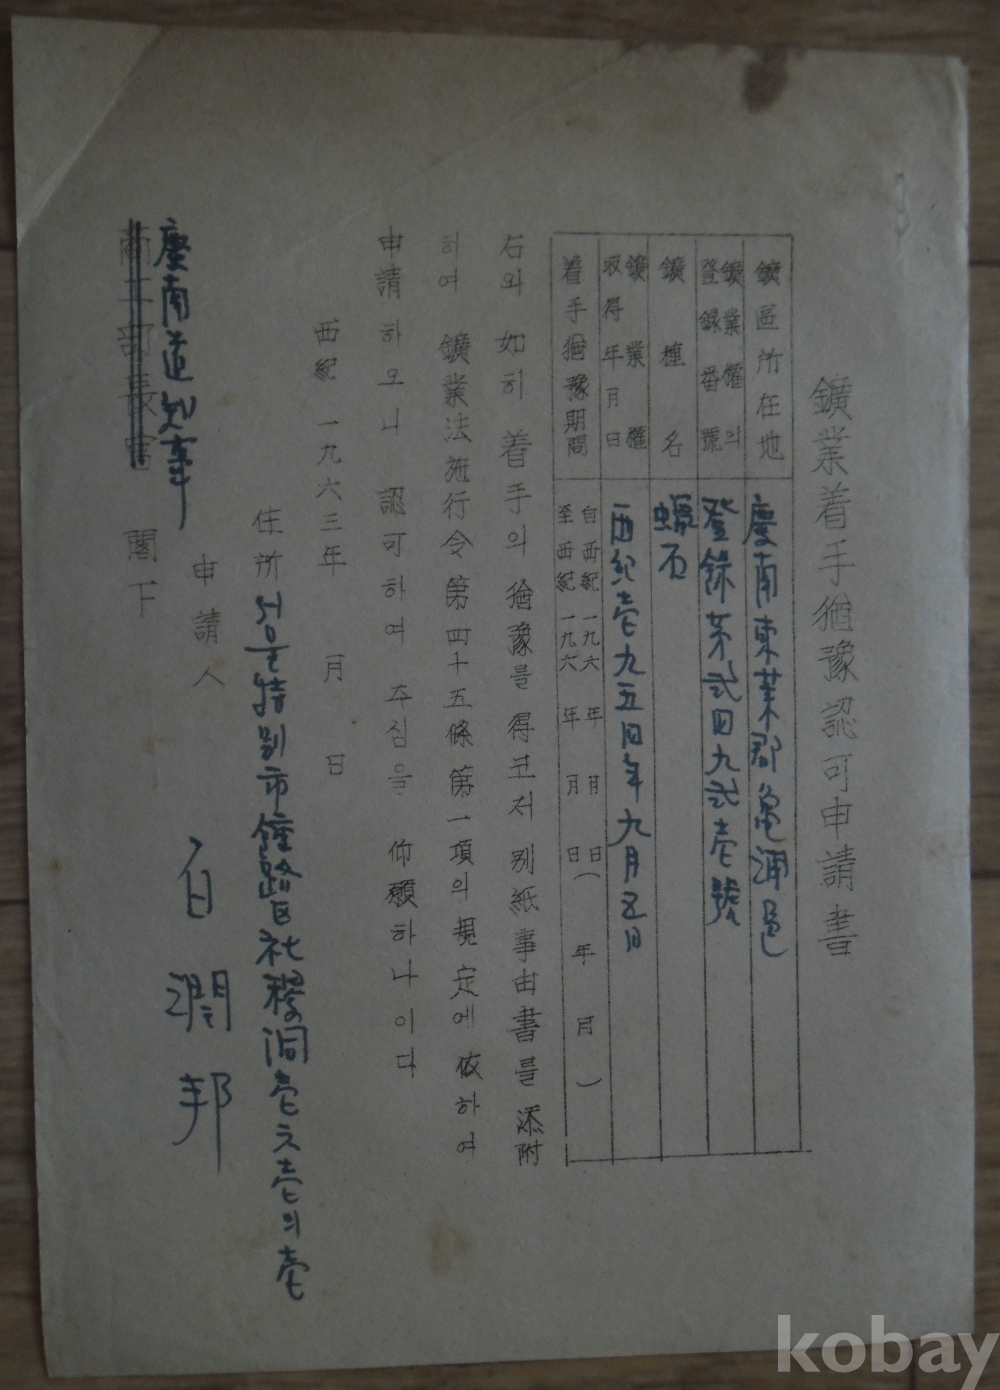 鑛業着手猶豫認可申請書
鑛區所在地 慶南東萊郡龜浦邑
鑛業權의登錄番號 登錄第弐四九弐壱號
鑛種名 蠟石
鑛業權收得年月日 西紀壱九五四年九月五日
着手猶豫期間 自西紀一九六 年 月 日
至西紀一九六 年 月 日( 年 月 )
右와 如히 着手의 猶豫를 得코저 別紙事由書를 添附
하여 鑛業法施行令第四十五條第一項의 規定에 依하여
申請하오니 認可하여 주심을 仰願하나이다
西紀 一九六三年 月 日
住所 서울特別市鍾路区社稷洞壱六壱의壱
申請人 白潤邦
慶南道知事
商工部長官 閣下
kobay